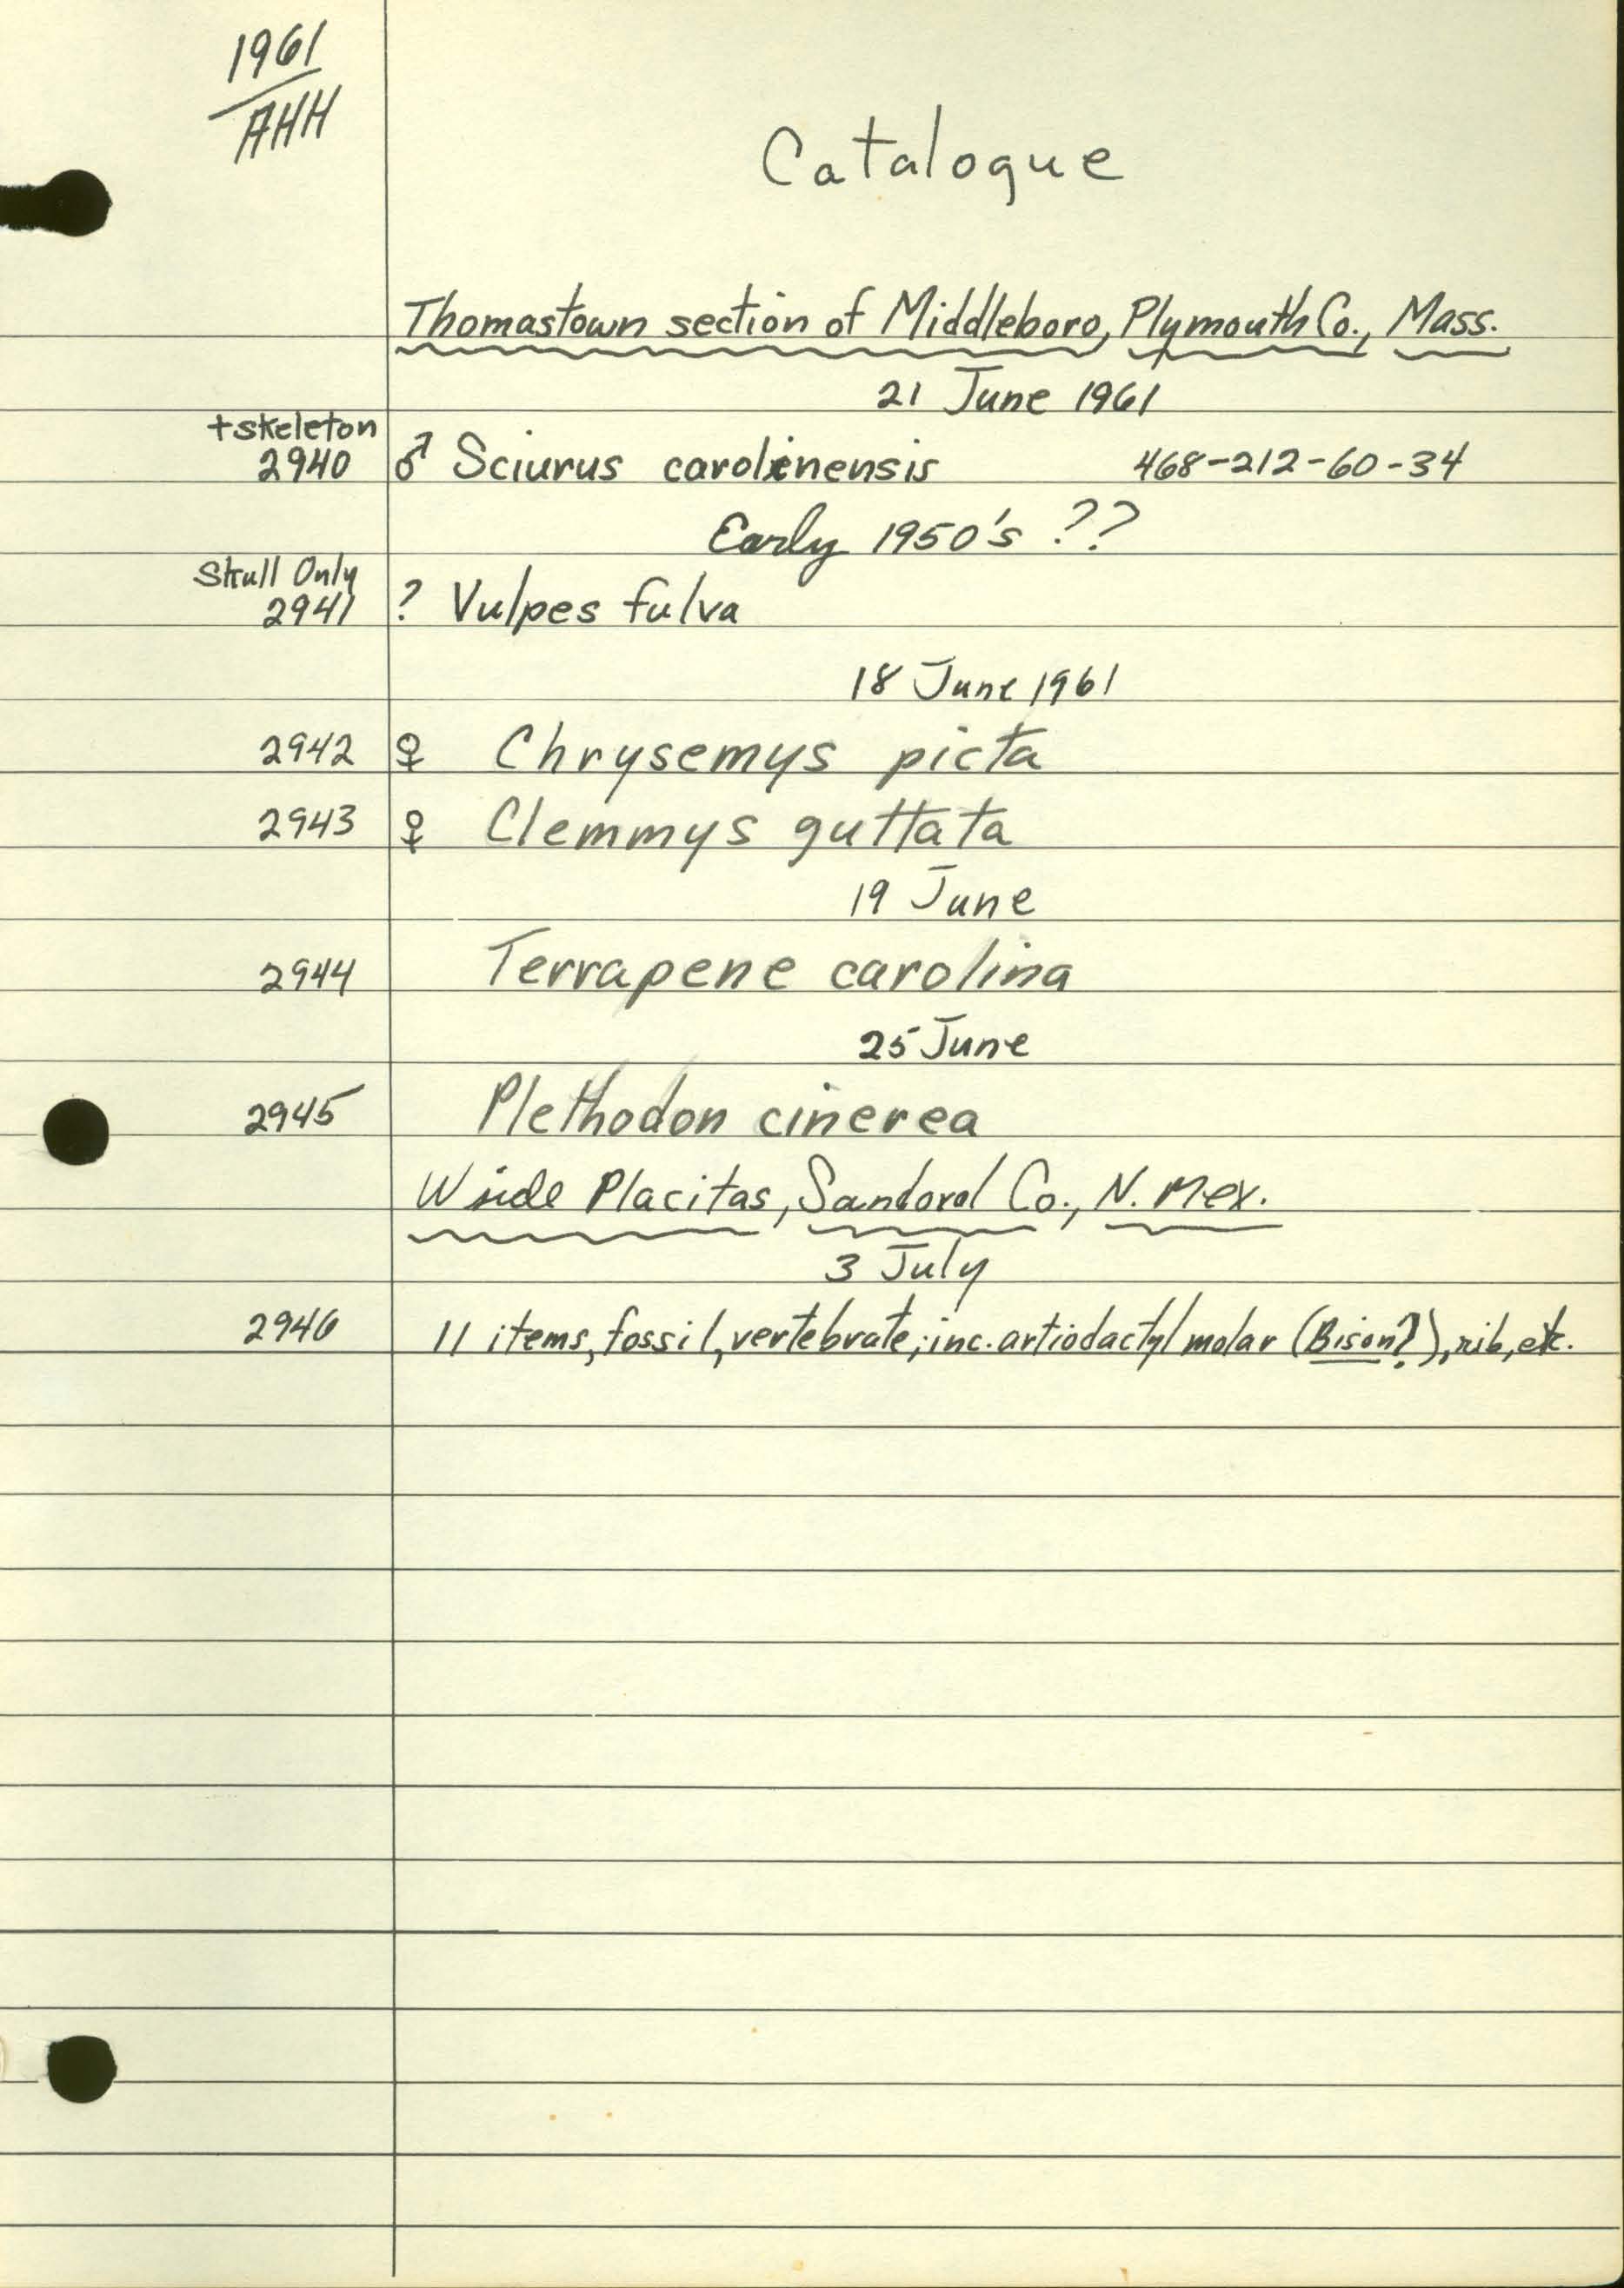 1961
AHH
Catalogue
Thomastown section of Middleboro, Plymouth Co., Mass.
21 June 1961
+skeleton
2940 ♂ Sciurus carolinensis 468-212-60-34
Early 1950's ??
Skull Only
2941 ? Vulpes fulva
18 June 1961
2942 ♀ Chrysemys picta
2943 ♀ Clemmys guttata
19 June
2944 Terrapene carolina
25 June
2945 Plethodon cinerea
W side Placitas, Sandoval Co., N. Mex.
3 July
2946 11 items, fossil, vertebrate; inc. artiodactyl molar (Bison?), rib, etc.